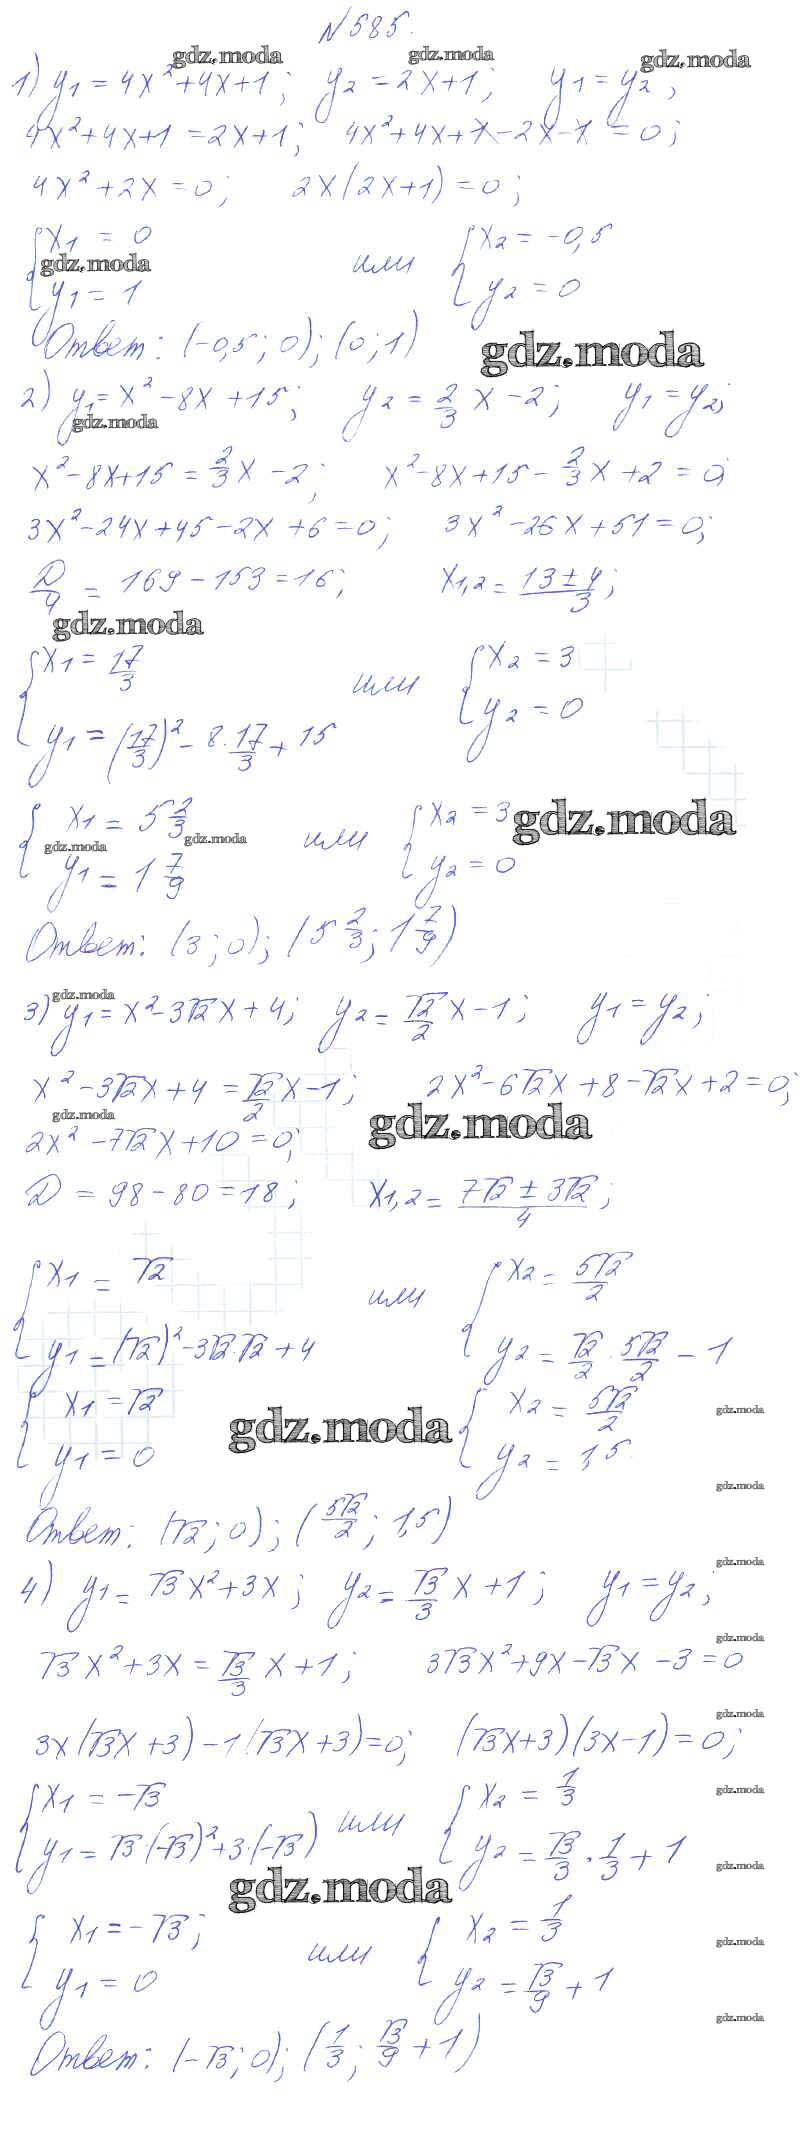 №585.
gdz.moda gdz.moda gdz.moda
1) y₁ = 4x² + 4x + 1; y₂ = 2x + 1; y₁ = y₂;
4x² + 4x + 1 = 2x + 1; 4x² + 4x + 1 − 2x − 1 = 0;
4x² + 2x = 0; 2x(2x + 1) = 0;
{x₁ = 0 {x₂ = −0,5
gdz.moda или
y₁ = 1 y₂ = 0
Ответ: (−0,5; 0); (0; 1) gdz.moda
2) y₁ = x² − 8x + 15; y₂ = 2/3 x − 2; y₁ = y₂;
gdz.moda
x² − 8x + 15 = 2/3 x − 2; x² − 8x + 15 − 2/3 x + 2 = 0;
3x² − 24x + 45 − 2x + 6 = 0; 3x² − 26x + 51 = 0;
D/4 = 169 − 153 = 16; x₁,₂ = (13 ± 4)/3;
gdz.moda
{x₁ = 17/3 или {x₂ = 3
y₁ = (17/3)² − 8·17/3 + 15 y₂ = 0
{x₁ = 5 2/3 или {x₂ = 3 gdz.moda
gdz.moda gdz.moda
y₁ = 1 7/9 y₂ = 0
Ответ: (3; 0); (5 2/3; 1 7/9)
gdz.moda
3) y₁ = x² − 3√2x + 4; y₂ = √2/2 x − 1; y₁ = y₂;
x² − 3√2x + 4 = √2/2 x − 1; 2x² − 6√2x + 8 − √2x + 2 = 0;
gdz.moda gdz.moda
2x² − 7√2x + 10 = 0;
D = 98 − 80 = 18; x₁,₂ = (7√2 ± 3√2)/4;
{x₁ = √2 или {x₂ = 5√2/2
y₁ = (√2)² − 3√2·√2 + 4 y₂ = √2/2 · 5√2/2 − 1
{x₁ = √2 gdz.moda {x₂ = 5√2/2 gdz.moda
y₁ = 0 y₂ = 1,5
gdz.moda
Ответ: (√2; 0); (5√2/2; 1,5)
gdz.moda
4) y₁ = √3x² + 3x; y₂ = √3/3 x + 1; y₁ = y₂;
gdz.moda
√3x² + 3x = √3/3 x + 1; 3√3x² + 9x − √3x − 3 = 0
gdz.moda
3x(√3x + 3) − 1(√3x + 3) = 0; (√3x + 3)(3x − 1) = 0;
{x₁ = −√3 или {x₂ = 1/3 gdz.moda
y₁ = √3·(−√3)² + 3·(−√3) y₂ = √3/3 · 1/3 + 1
gdz.moda gdz.moda
{x₁ = −√3; или {x₂ = 1/3 gdz.moda
y₁ = 0 y₂ = √3/9 + 1
gdz.moda
Ответ: (−√3; 0); (1/3; √3/9 + 1)